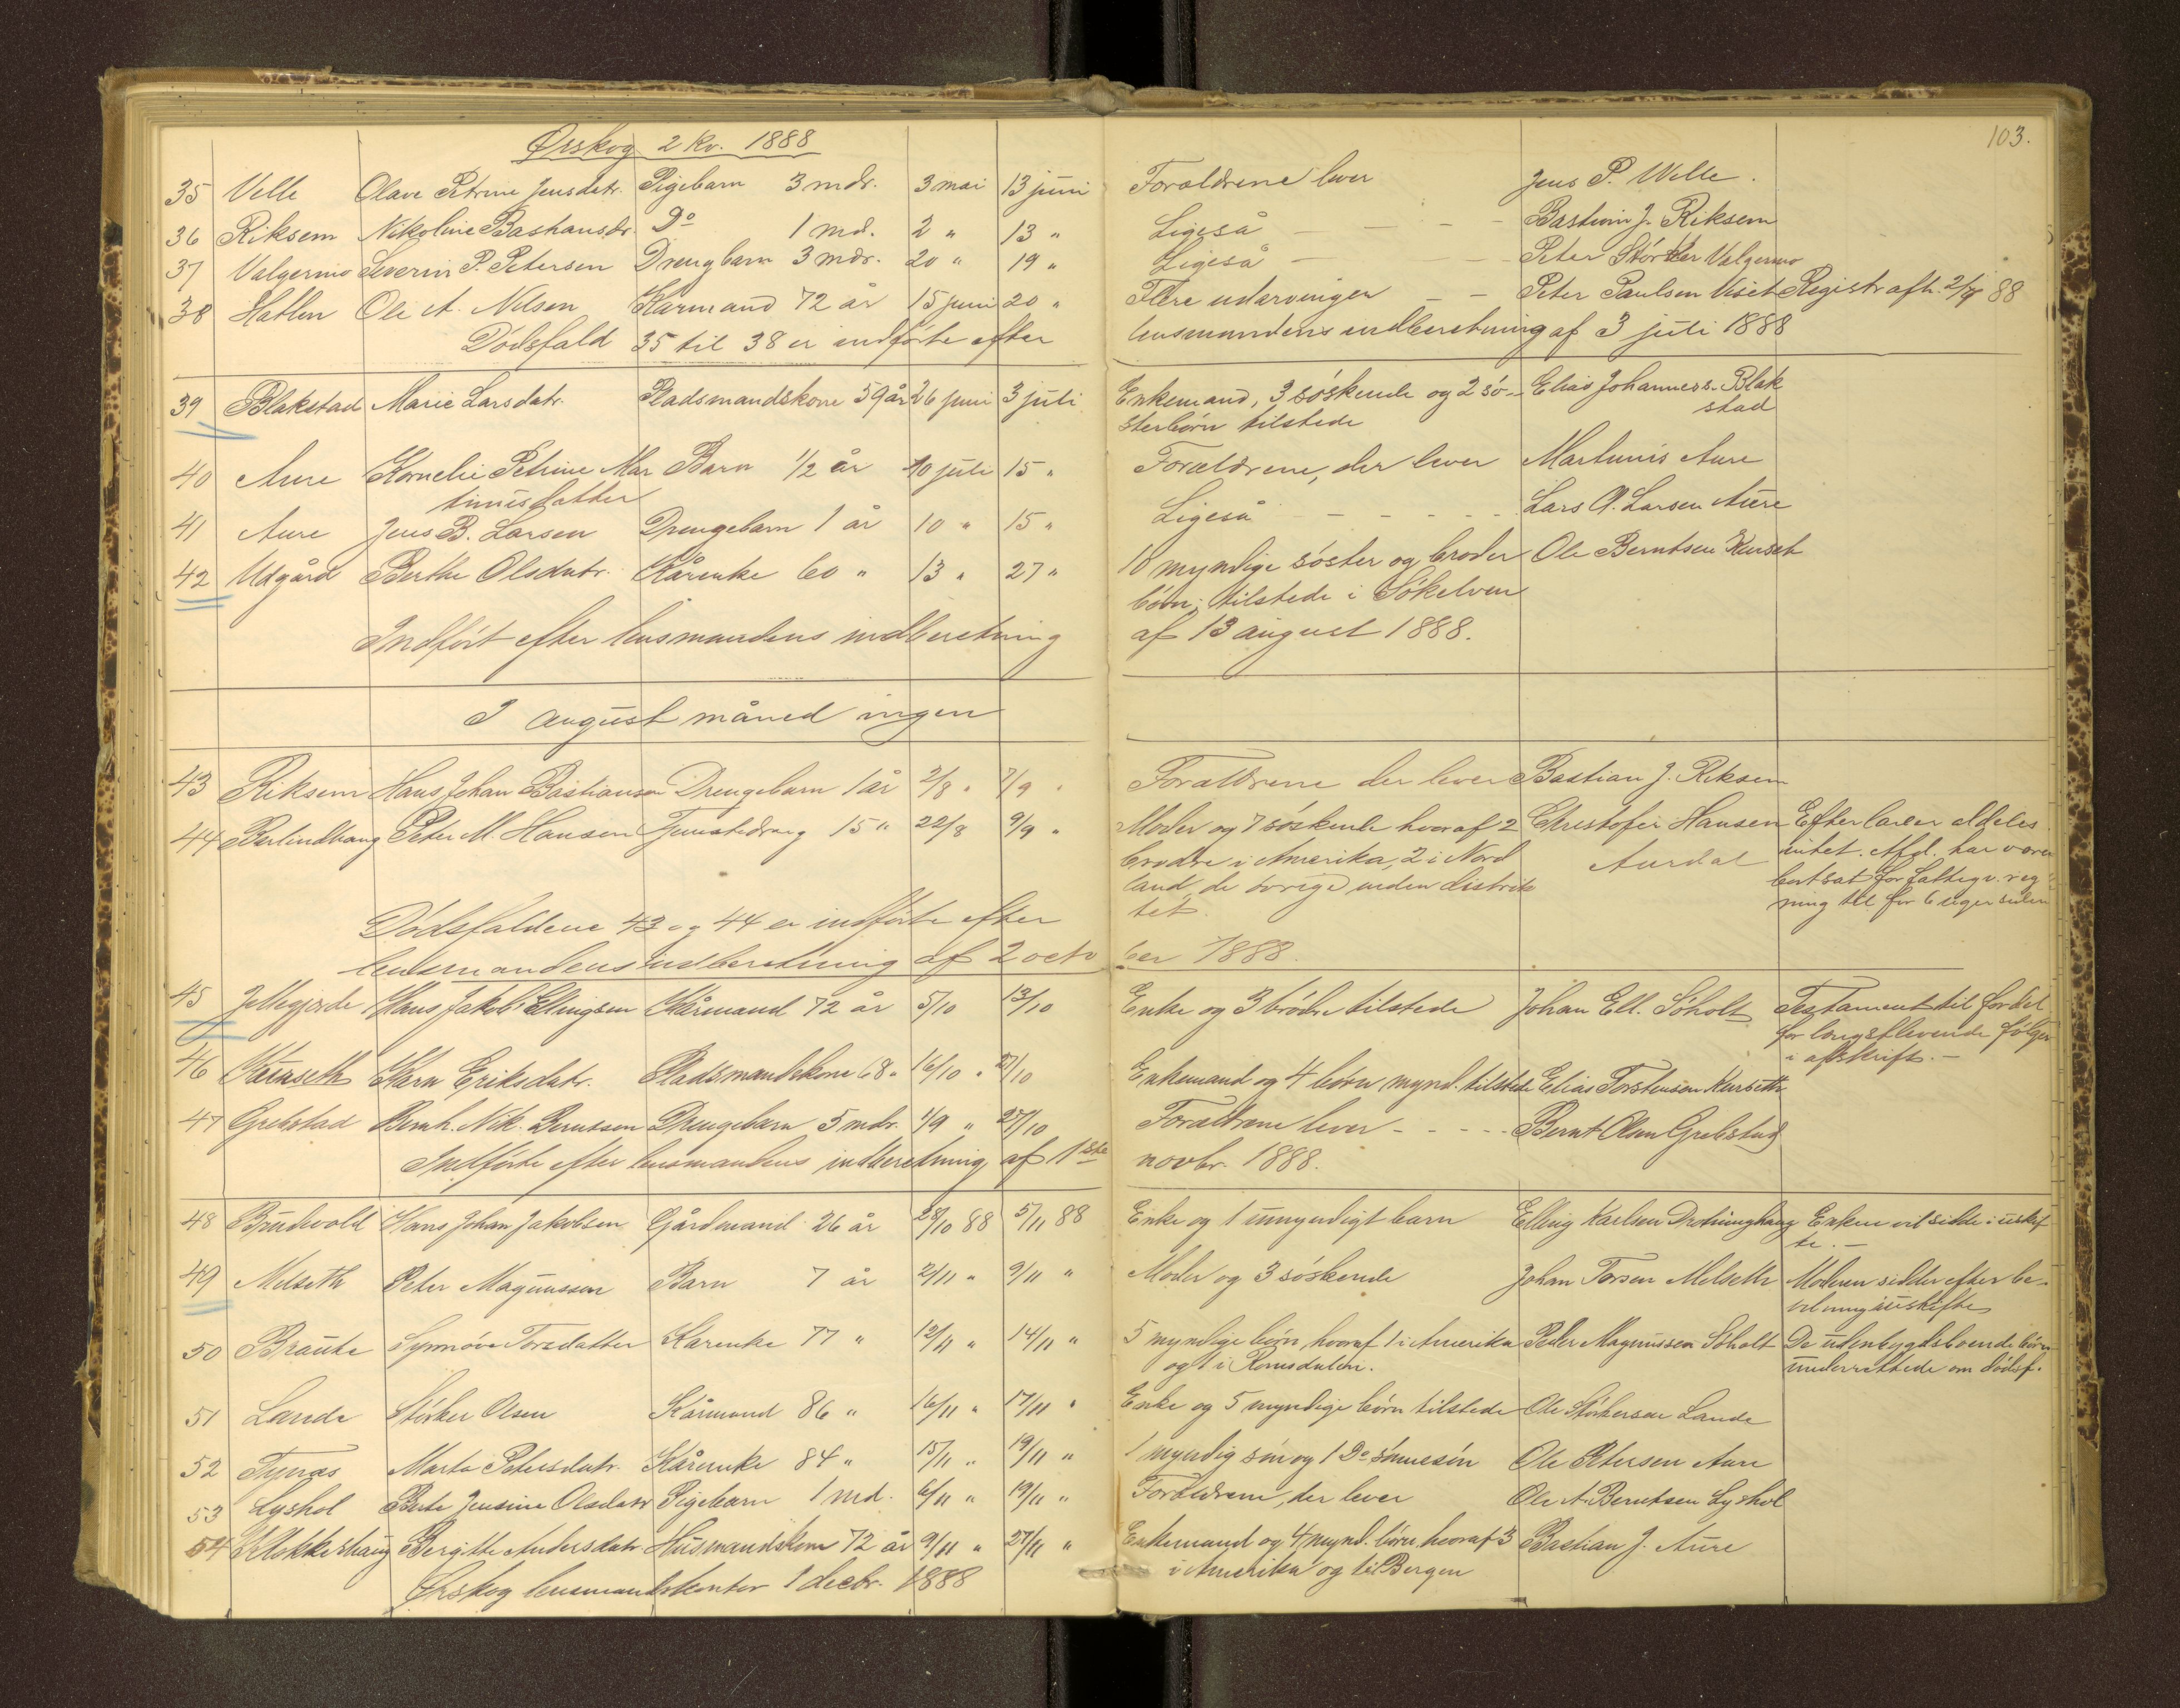 103.
Ørskog 2 kv. 1888
35 Velle Olave Petrine Jensdatr. Pigebarn 3 mdr. 3 mai 13 juni Forældrene lever Jens P. Welle.
36 Riksem Nikoline Bastiansdr. Do 1 md. 2 " 13 " Ligeså — — — Bastian J. Riksem
37 Valgermo Severin P. Petersen Drengbarn 3 mdr. 20 " 19 " Ligeså — — — Peter Størker Valgermo
38 Hatlen Ole A. Nilsen Kårmand 72 år 15 juni 20 " Flere udarvinger — — Peter Paulsen Viset Registr afh. 2/7 88
Dödsfald 35 til 38 er indförte efter lensmandens indberetning af 3 juli 1888
39 Blakstad Marie Larsdatr. Pladsmandskone 59 år 26 juni 3 juli Enkemand, 3 söskende og 2 sö- Elias Johanness. Blak
sterbörn tilstede stad
40 Aure Kornelie Petrine Mar Barn 1/2 år 10 juli 15 " Forældrene, der lever Martinus Aure
tinusdatter
41 Aure Jens B. Larsen Drengebarn 1 år 10 " 15 " Ligeså — — — — Lars A. Larsen Aure
42 Udgård Berthe Olsdatr. Kårenke 60 " 13 " 27 " 10 myndige söster og broder Ole Berntsen Kurset
börn; tilstede i Sökelven
Indfört efter lensmandens indberetning af 13 august 1888.
I august måned ingen
43 Riksem Hans Johan Bastiansen Drengebarn 1 år 2/8 " 7/9 " Forældrene der lever Bastian J. Riksem
44 Peter M. Hansen Tjenestedreng 15 " 22/8 9/9 " Moder og 7 söskende hvoraf 2 Christofer Hansen Efterlader aldeles
brödre i Amerika, 2 i Nord Aurdal intet. Afd. har været
land, de övrige inden distrik bortsat for fattigv. reg
tet. ning til for 6 uger siden
Dödsfaldene 43 og 44 er indförte efter
lensmandens indberetning af 2 octo ber 1888.
45 Jellegjerde Hans Jakob Ellingsen Kårmand 72 år 5/10 13/10 Enke og 3 brödre tilstede Johan Ell. Söholt Testament til fordel
for længstlevende fölger
i afskrift. —
46 Kurseth Karn Eriksdatr. Pladsmandskone 68 " 16/10 " 27/10 Enkemand og 4 börn mynd. tilstede Elias Torstensen Kurseth
47 Grebstad Bernh. Nik. Berntsen Drengebarn 5 mdr. 1/9 " 27/10 Forældrene lever — — — — Bernt Olsen Grebstad
Indförte efter lensmandens indberetning af 1ste novbr. 1888.
48 Brudevold Hans Johan Jakobsen Gårdmand 26 år 28/10 88 5/11 88 Enke og 1 umyndigt barn Elling Karlsen Drotninghaug Enken vil sidde i uskif
te. —
49 Melseth Peter Magnussen Barn 7 år 2/11 " 9/11 " Moder og 3 söskende Johan Torsen Melseth Moderen sidder efter be-
vilning i uskifte
50 Braute Synnöve Torsdatter Kårenke 77 " 12/11 " 14/11 " 5 myndige börn hvoraf 1 i Amerika Peder Magnussen Söholt De udenbygdsboende börn
og 1 i Romsdalen. underrettede om dödsf.
51 Lande Störker Olsen Kårmand 86 " 16/11 " 17/11 " Enke og 5 myndige börn tilstede Ole Störkersen Lande
52 Tynæs Marta Petersdatr. Kårenke 84 " 15/11 " 19/11 " 1 myndig sön og 1 Do sönnesön Ole Petersen Aure
53 Lyshol Berte Jensine Olsdatr Pigebarn 1 md. 6/11 " 19/11 " Forældrene, der lever Ole A. Berntsen Lyshol
54 Klokkerhaug Bergitte Andersdatr. Husmandskone 72 år 9/11 " 27/11 " Enkemand og 4 mynd. börn hvoraf 3 Bastian J. Aure
i Amerika og 1 i Bergen
Örskog lensmandskontor 1 decbr. 1888